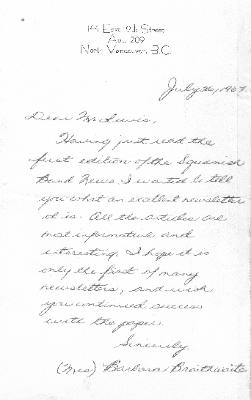 East 9th Street
Apt. 209
North Vancouver, B.C.
July 26, 1967
Dear Mr. Lewis,
Having just read the
first edition of the Squamish
Band News, I wanted to tell
you what an excellent newsletter
it is. All the articles are
most informative and
interesting. I hope it is
only the first of many
newsletters, and wish
you continued success
with the paper.
Sincerely
(Mrs) Barbara Braithwaite